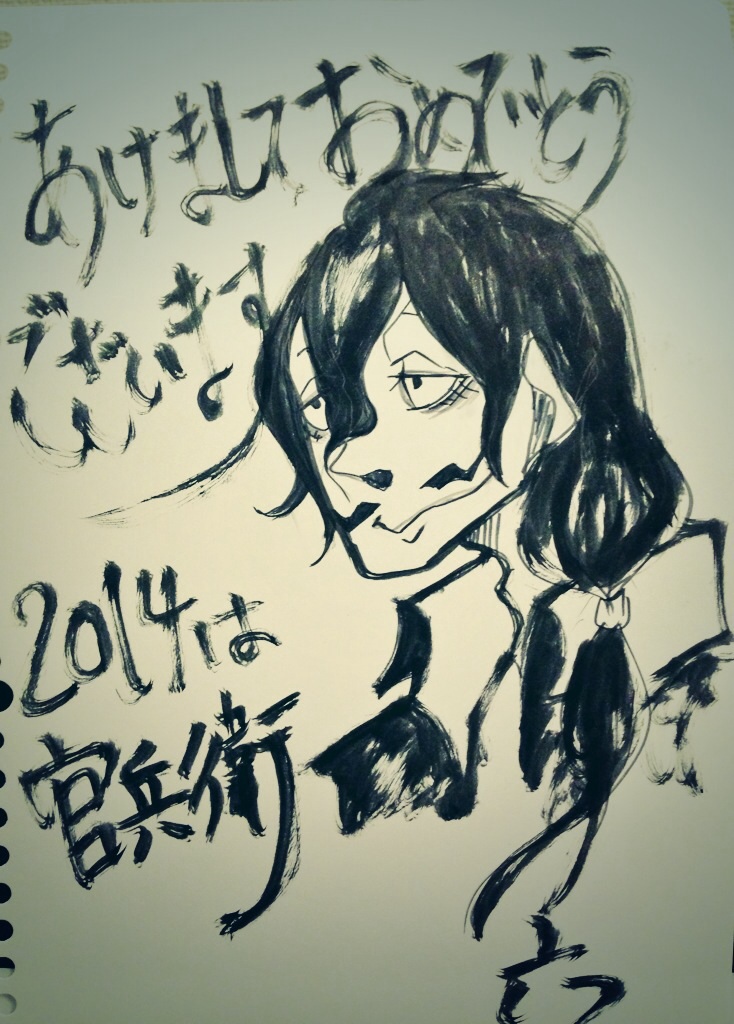 あけましておめでとう
ございます
2014は
官兵衛